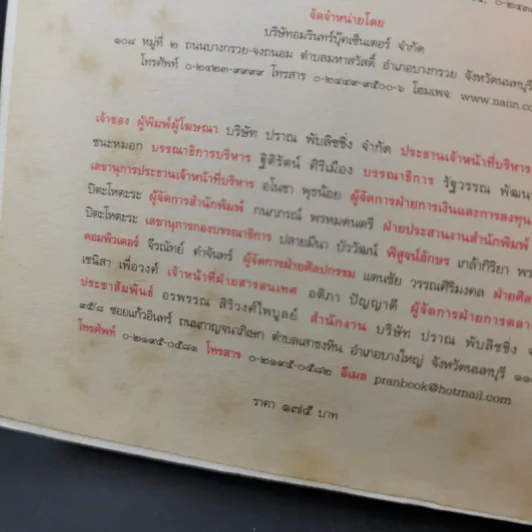 จัดจำหน่ายโดย
บริษัทอมรินทร์บุ๊คเซ็นเตอร์ จำกัด
๑๐๘ หมู่ที่ ๒ ถนนบางกรวย-จงถนอม ตำบลมหาสวัสดิ์ อำเภอบางกรวย จังหวัดนนทบุรี
โทรศัพท์ ๐-๒๔๒๓-๙๙๙๙ โทรสาร ๐-๒๔๔๙-๙๕๐๐-๖ โฮมเพจ: www.naiin.co
เจ้าของ ผู้พิมพ์ผู้โฆษณา บริษัท ปราณ พับลิชชิ่ง จำกัด ประธานเจ้าหน้าที่บริหาร
ชนะหมอก บรรณาธิการบริหาร ฐิติรัตน์ ศิริเมือง บรรณาธิการ รัฐวรรณ พัฒน
เลขานุการประธานเจ้าหน้าที่บริหาร อโนชา พุชน้อย ผู้จัดการฝ่ายการเงินและการลงทุน
ปิตะโหตะระ ผู้จัดการสำนักพิมพ์ กนาภรณ์ พรหมดนตรี ฝ่ายประสานงานสำนักพิมพ์
ปิตะโหตะระ เลขานุการกองบรรณาธิการ ปลายมีนา บัววัฒน์ พิสูจน์อักษร เกล้ากิริยา พร
คอมพิวเตอร์ จีรณัทย์ คำจันทร์ ผู้จัดการฝ่ายศิลปกรรม แดนชัย วรรณศิริมงคล ฝ่ายศิลป
เชนิสา เพื่อวงศ์ เจ้าหน้าที่ฝ่ายสารสนเทศ อติภา ปัญญาดี ผู้จัดการฝ่ายการตลา
ประชาสัมพันธ์ อรพรรณ สิริวงศ์ไพบูลย์ สำนักงาน บริษัท ปราณ พับลิชชิ่ง จ
๑๕/๘ ซอยแก้วอินทร์ ถนนกาญจนาภิเษก ตำบลเสาธงหิน อำเภอบางใหญ่ จังหวัดนนทบุรี ๑๑
โทรศัพท์ ๐-๒๑๙๕-๐๕๘๑ โทรสาร ๐-๒๑๙๕-๐๕๘๒ อีเมล pranbook@hotmail.com
ราคา ๑๗๕ บาท